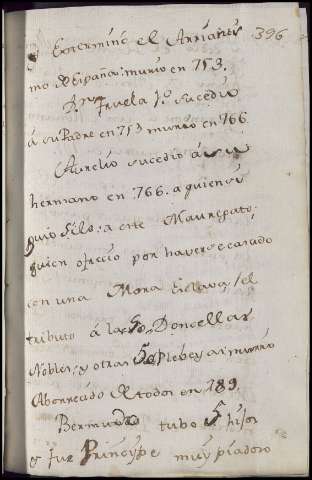 Exterminó el Arrianis 396
mo de España: murio en 753.
Dn. Fruela 1º. Sucedio
á su Padre en 753 murio en 766.
Aurelio sucedio á su
hermano en 766. a quien si
guio Silo: a este Mauregato:
quien ofrecio por haverse casado
con una Mora Esclava, el
tributo á las 50, Doncellas
Nobles, y otras 50 Plebeyas: murió
Aborrecido de todos en 789.
Bermudo tubo 5 hijos
y fue Principe muy piadoso